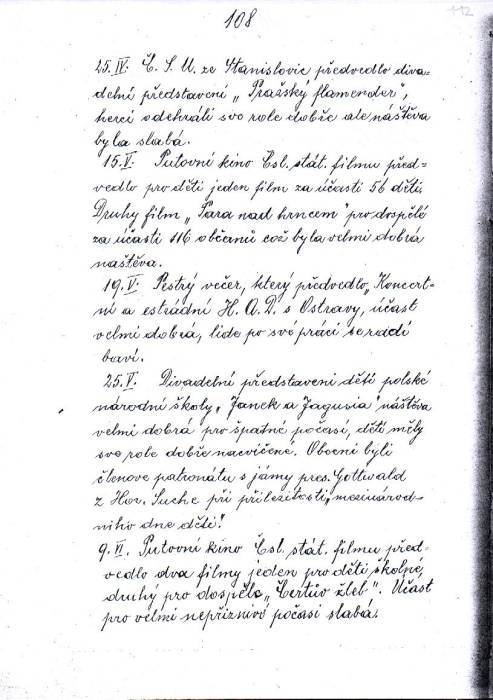 108
112
25. IV. Č. S. M. ze Stanislovic předvedlo diva-
delní představení „Pražský flamender",
herci odehráli svo role dobře ale náštěva
byla slabá.
15. V. Putovní kino Čsl. stát. filmu před-
vedlo pro děti jeden film za účasti 56 dětí.
Druhy film „Pára nad hrncem" pro dospělé
za účasti 116 občanů což byla velmi dobrá
naštěva.
19. V. Pestrý večer, který předvedlo „Koncert-
ní a estrádní H. A. D. s Ostravy, účast
velmi dobrá, lide po své práci se radi
baví.
25. V. Divadelní představeni dětí polské
národní školy „Janek a Jagusia" náštěva
velmi dobrá pro špatné počasí, děti měly
svo role dobře nacvičene. Obecni byli
členove patronátu s jámy pres. Gottwald
z Hor. Suche při přiležitosti „mezinárod-
niho dne děti".
9. VI. Putovní kino Čsl. stát. filmu před-
vedlo dva filmy jeden pro děti školné,
druhý pro dospěle „Čertův žleb". Učast
pro velmi nepřiznivo počasi slabá.